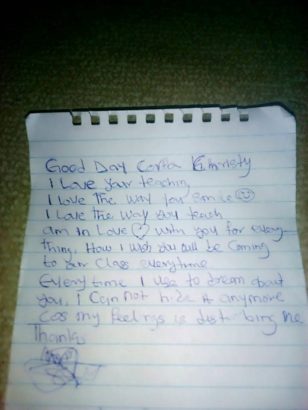 Good Day Corfa
I Love your teaching
I Love The way you Smile
I Love The way you teach
am in Love with you for every
thing, How I wish you cull be Coming
to our Class everytime
Everytime I use to dream about
you, I Can not hide it anymore
Cos my feelings is disturbing me
Thanks